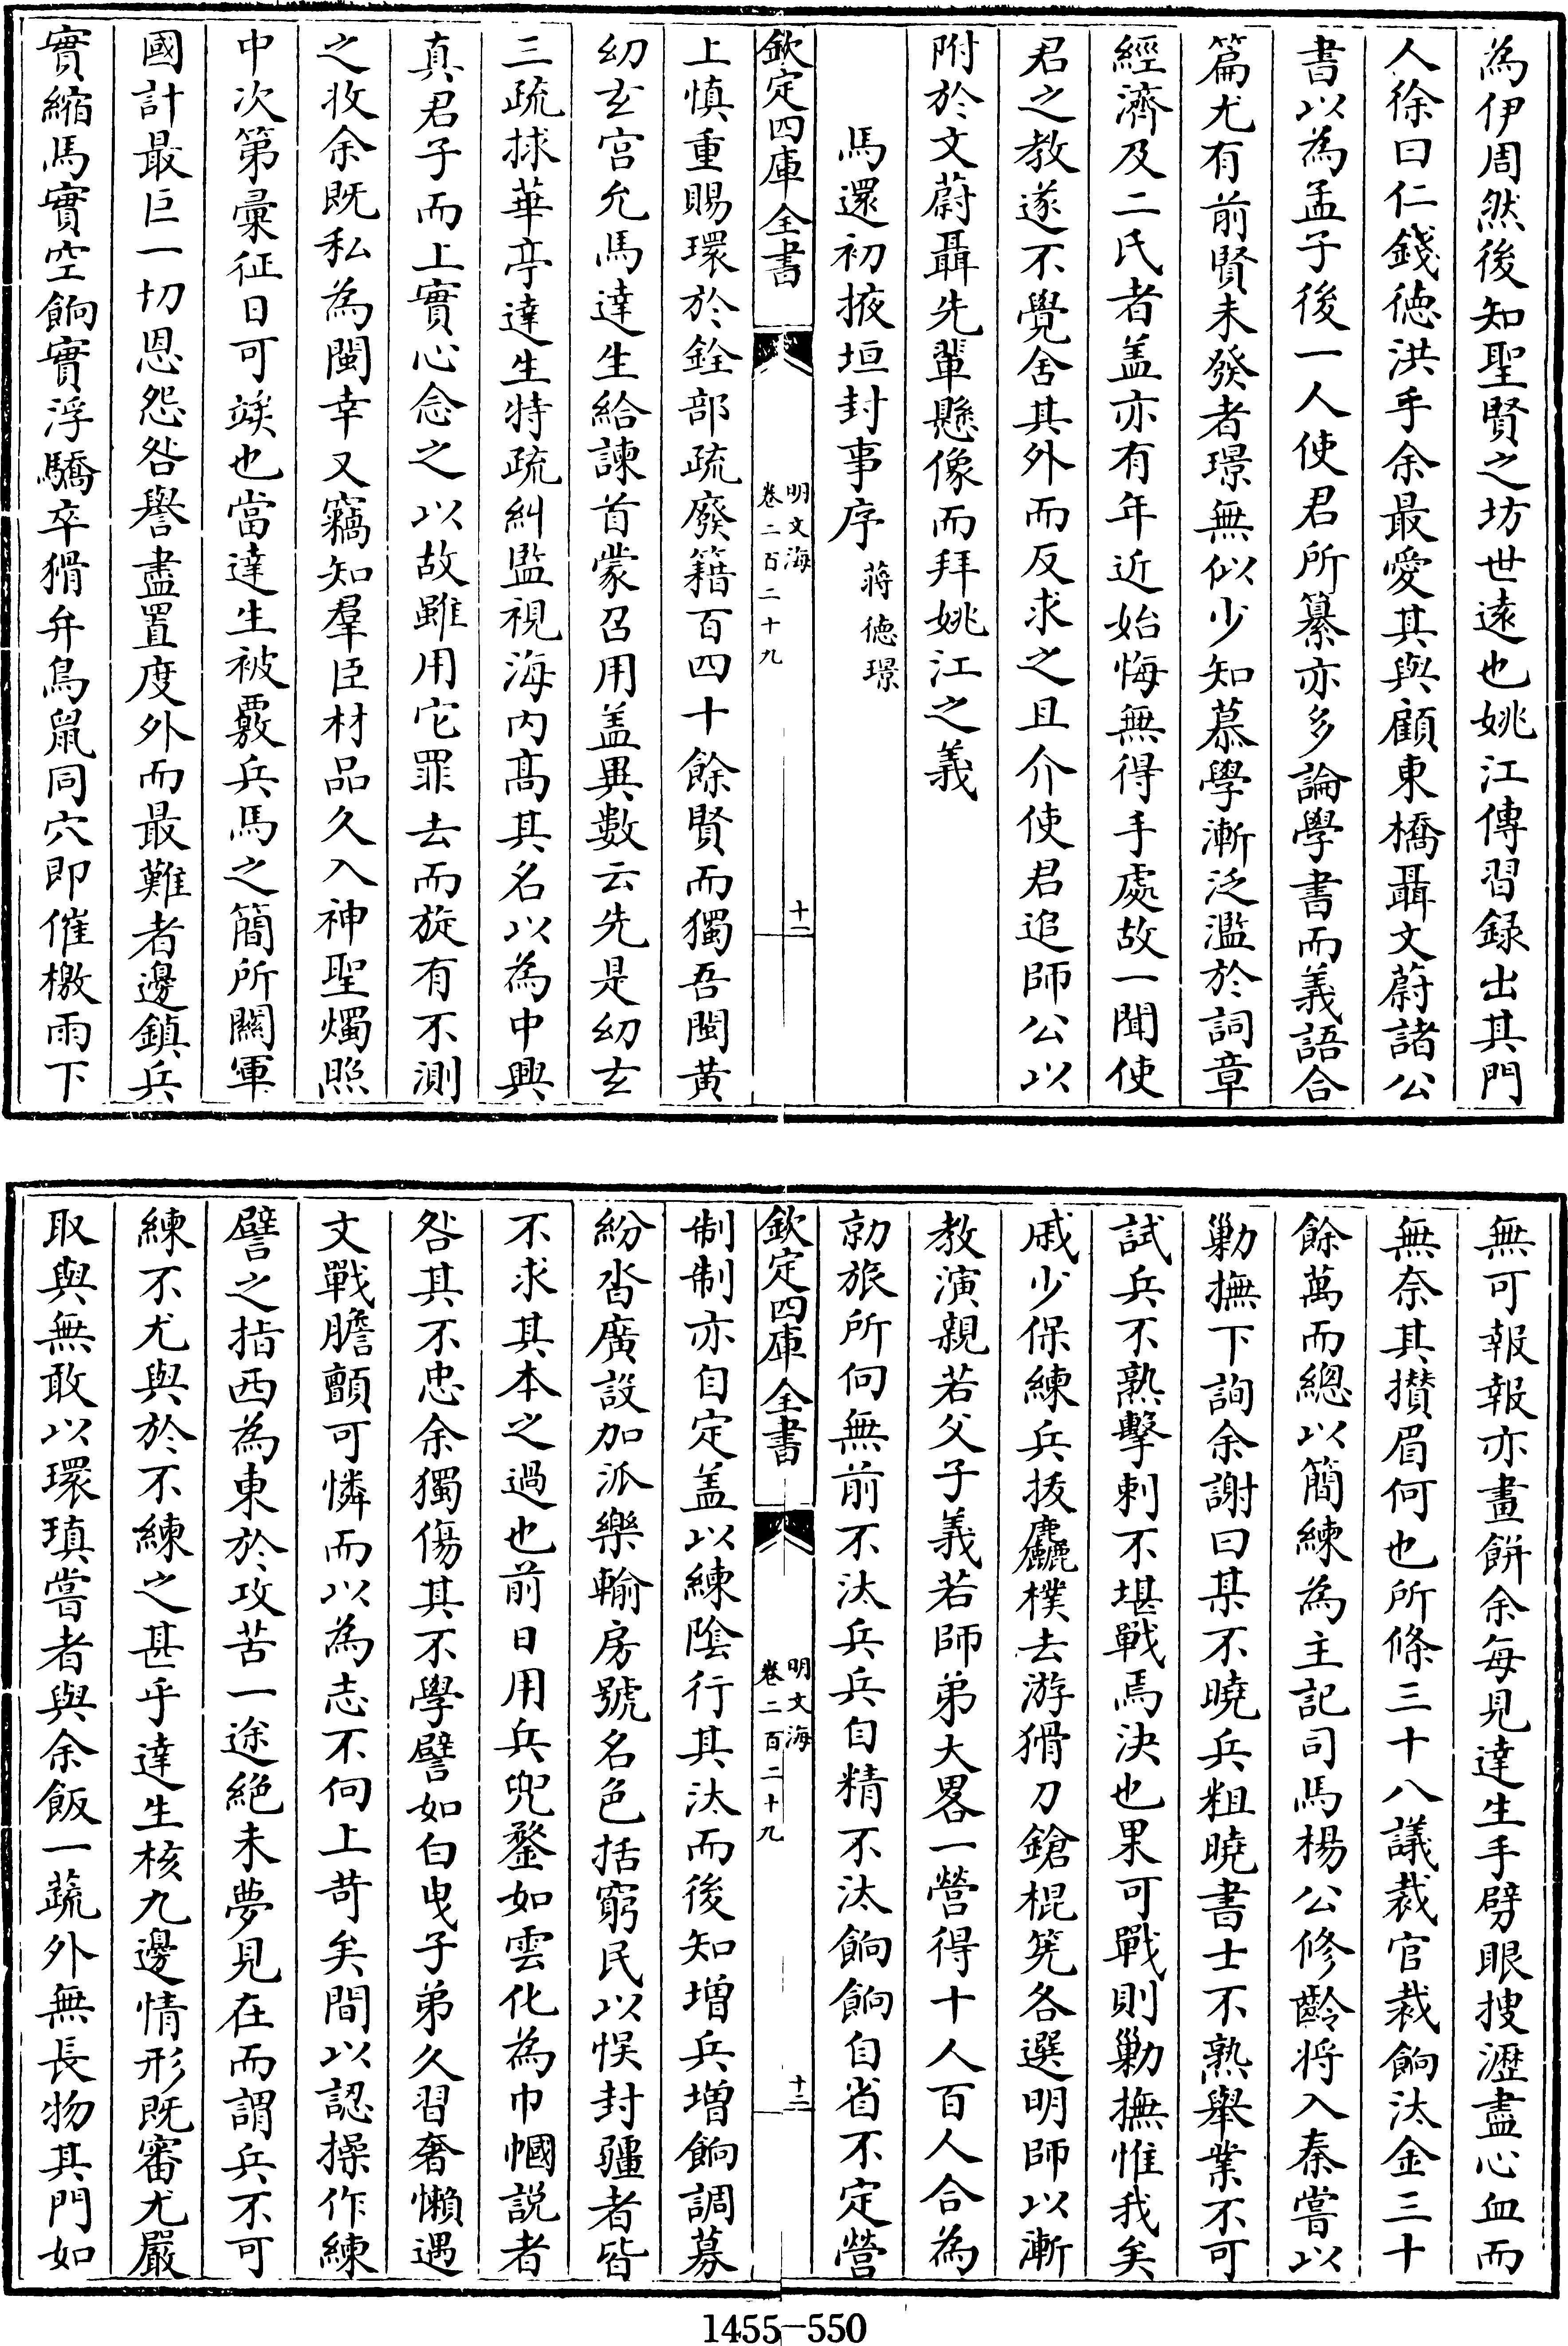 為伊周然後知聖賢之坊世遠也姚江傳習録出其門
人徐曰仁錢徳洪手余最愛其與顧東橋聶文蔚諸公
書以為孟子後一人使君所纂亦多論學書而義語合
篇尤有前賢未發者璟無似少知慕學漸泛濫於詞章
經濟及二氏者盖亦有年近始悔無得手處故一聞使
君之教遂不覺舍其外而反求之且介使君追師公以
附於文蔚聶先輩懸像而拜姚江之義
馬還初掖垣封事序 蔣徳璟
欽定四庫全書
明文海
卷二百二十九
十二
上慎重賜環於銓部疏廢籍百四十餘賢而獨吾閩黄
幼玄宫允馬達生給諫首蒙召用盖異數云先是幼玄
三疏捄華亭達生特疏糾監視海内髙其名以為中興
真君子而上實心念之以故雖用它罪去而旋有不測
之收余既私為閩幸又竊知羣臣材品久入神聖燭照
中次第彚征日可竢也當達生被覈兵馬之簡所關軍
國計最巨一切恩怨咎譽盡置度外而最難者邊鎮兵
實縮馬實空餉實浮驕卒猾弁鳥鼠同穴即催檄雨下
無可報報亦畫餅余每見達生手劈眼搜瀝盡心血而
無奈其攅眉何也所條三十八議裁官裁餉汰金三十
餘萬而總以簡練為主記司馬楊公修齡将入秦嘗以
勦撫下詢余謝曰某不曉兵粗曉書士不熟舉業不可
試兵不熟擊刺不堪戰焉決也果可戰則勦撫惟我矣
戚少保練兵拔麤樸去游猾刀鎗棍筅各選明師以漸
教演親若父子義若師弟大畧一營得十人百人合為
勍旅所向無前不汰兵兵自精不汰餉餉自省不定營
欽定四庫全書
明文海
卷二百二十九
十三
制制亦自定盖以練隂行其汰而後知増兵増餉調募
紛沓廣設加派樂輸房號名色括窮民以悮封疆者皆
不求其本之過也前日用兵兜鍪如雲化為巾幗説者
咎其不忠余獨傷其不學譬如白曳子弟久習奢懶遇
文戰膽顫可憐而以為志不向上苛矣間以認操作練
譬之指西為東於攻苦一途絶未夢見在而謂兵不可
練不尤與於不練之甚乎達生核九邊情形既審尤嚴
取與無敢以環瑱嘗者與余飯一蔬外無長物其門如
1455—550